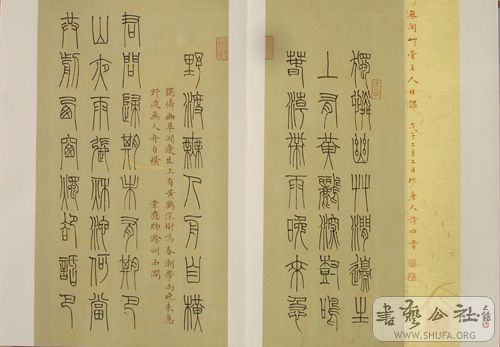 艸堂主人日課 二月二日抄唐人詩四首
獨憐幽艸澗邊生
上有黃鸝深樹鳴
春潮帶雨晚來急
野渡無人舟自橫
獨憐幽草澗邊生上有黃鸝深樹鳴春潮帶雨晚來急
野渡無人舟自橫
韋應物滁州西澗
君問歸期未有期巴
山夜雨漲秋池何當
共剪西窗燭卻話巴
書藝公社
WWW.SHUFA.ORG